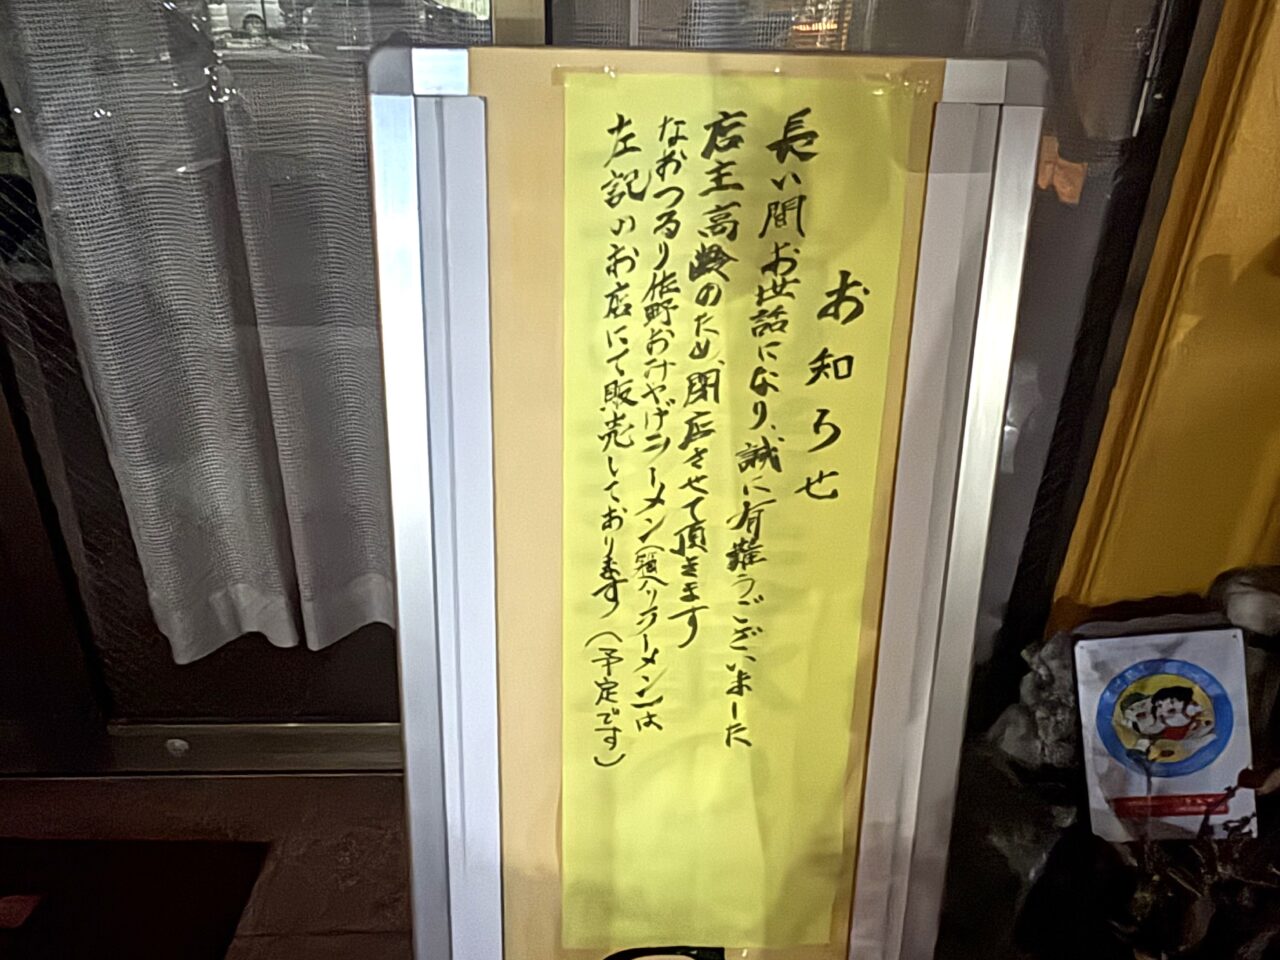 お知らせ
長い間お世話になり、誠に有難うございました
店主高齢のため、閉店させて頂きます
なおつるり佐野おみやげラーメン(箱入りラーメン)は
左記のお店にて販売しております(予定です)